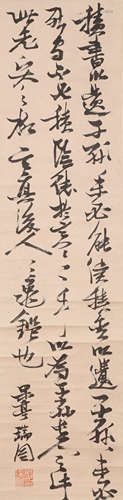 積書以遺子孫未必能讀積金以遺子孫未必
能守不如積陰德於冥冥之中以為子孫長久之計
此先賢之格言真後人之龜鑑也 果亭瑞图